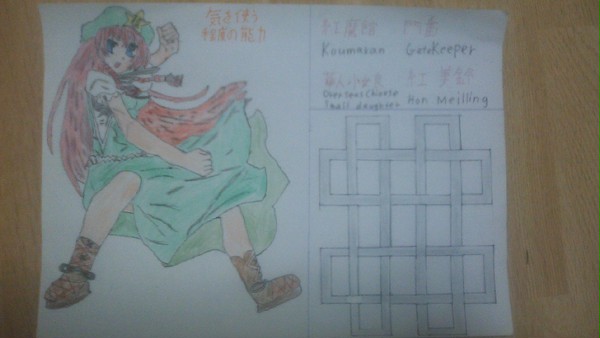 気を使う
程度の能力
紅魔館 門番
Koumakan GateKeeper
華人小女臭
Overseas Chinese
small daughter
紅 美鈴
Hon Meilling